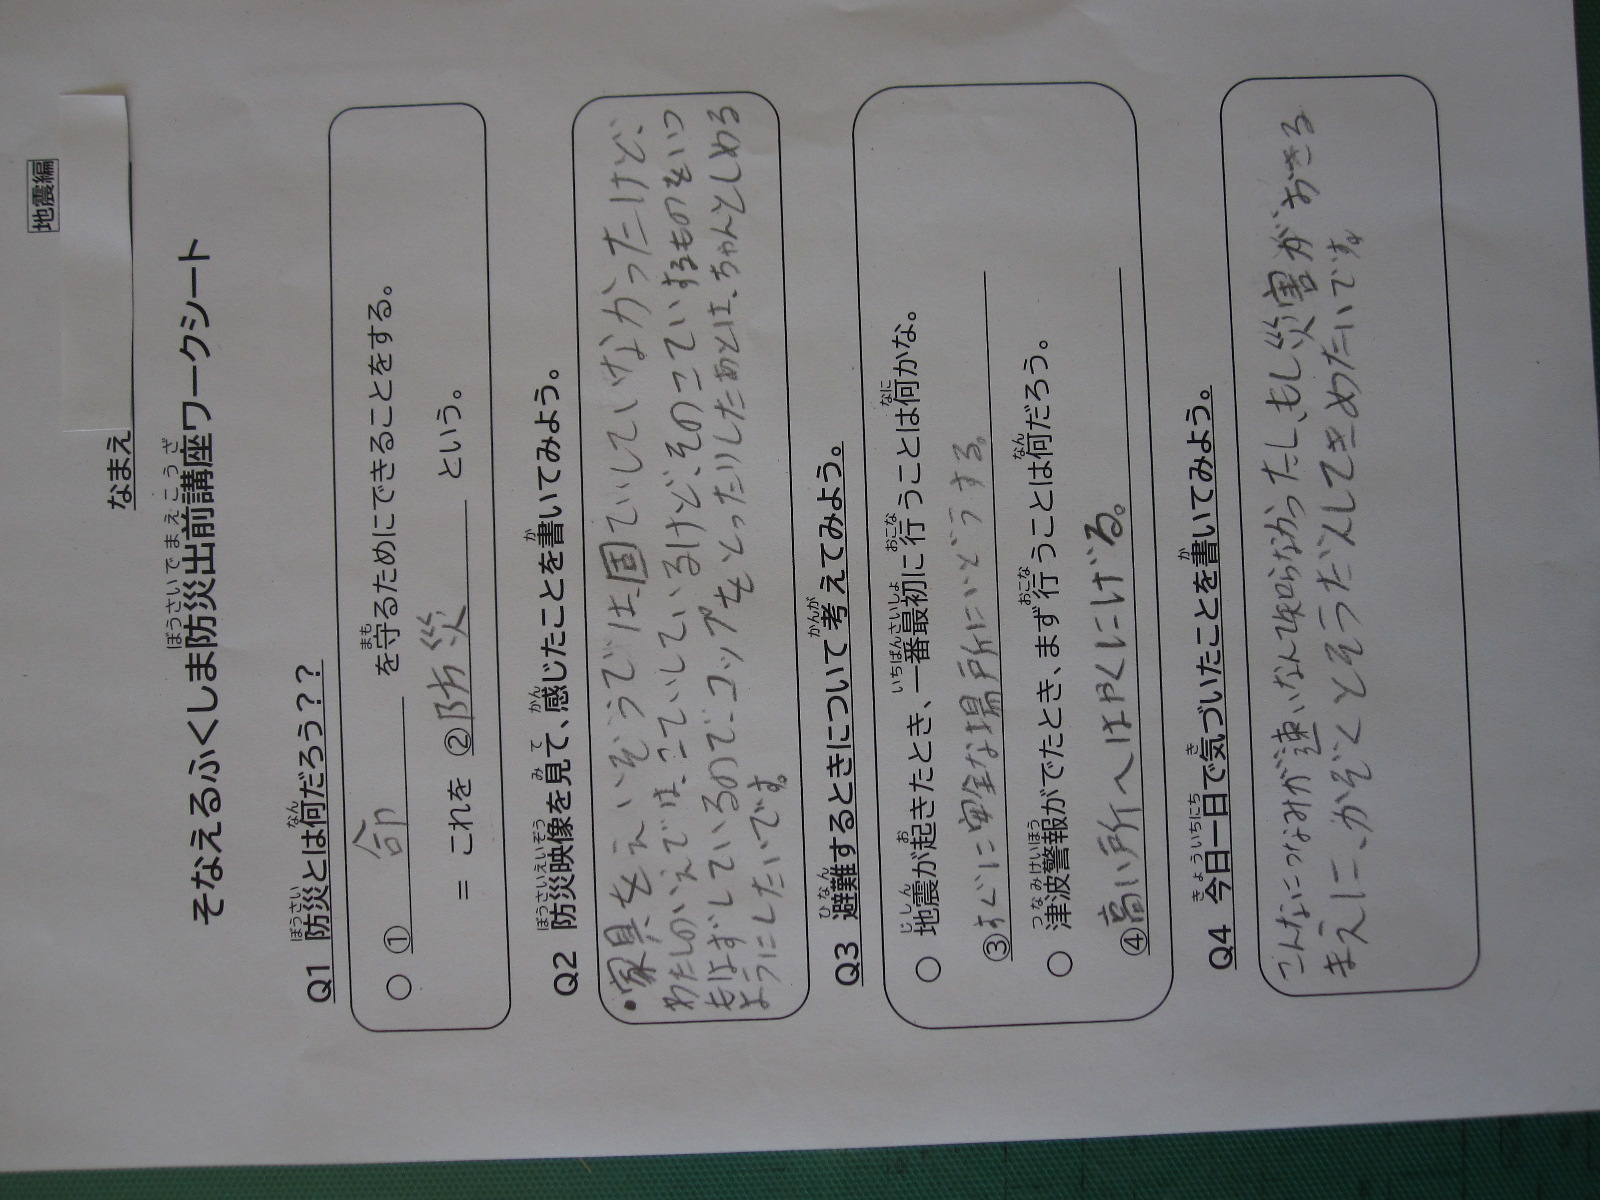 地震編
なまえ
そなえるふくしま防災出前講座ワークシート
Q1 防災とは何だろう？？
○ ① 命 を守るためにできることをする。
＝ これを ②防災 という。
Q2 防災映像を見て、感じたことを書いてみよう。
・家具をえいぞうでは、固ていしていなかったけど、
わたしのいえでは、こていしているけど、そのこていするものをいつ
もはずしているので、コップをとったりしたあとは、ちゃんとしめる
ようにしたいです。
Q3 避難するときについて考えてみよう。
○ 地震が起きたとき、一番最初に行うことは何かな。
③すぐに安全な場所にいどうする。
○ 津波警報がでたとき、まず行うことは何だろう。
④高い所へはやくにげる。
Q4 今日一日で気づいたことを書いてみよう。
こんなにつなみが速いなんて知らなかったし、もし災害がおきる
まえに、かぞくとそうだんしてきめたいです。